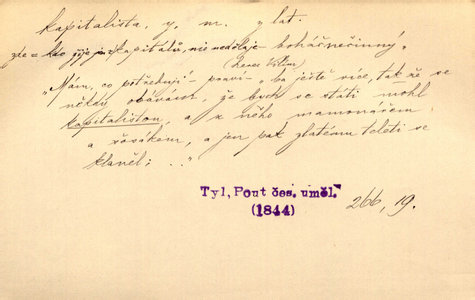 kapitalista, y. m. z lat.
zde = kdo žije z kapitálů, nic nedělaje boháč nečinný.
„Mám, co potřebuji – praví – ba ještě více, tak že se
někdy obávám, že bych se státi mohl
kapitalistou, a z něho mamonářem
a
a jen pak zlatému teleti se
klaněl; ..."
Tyl, Pout čes. uměl.
(1844)
266, 19.